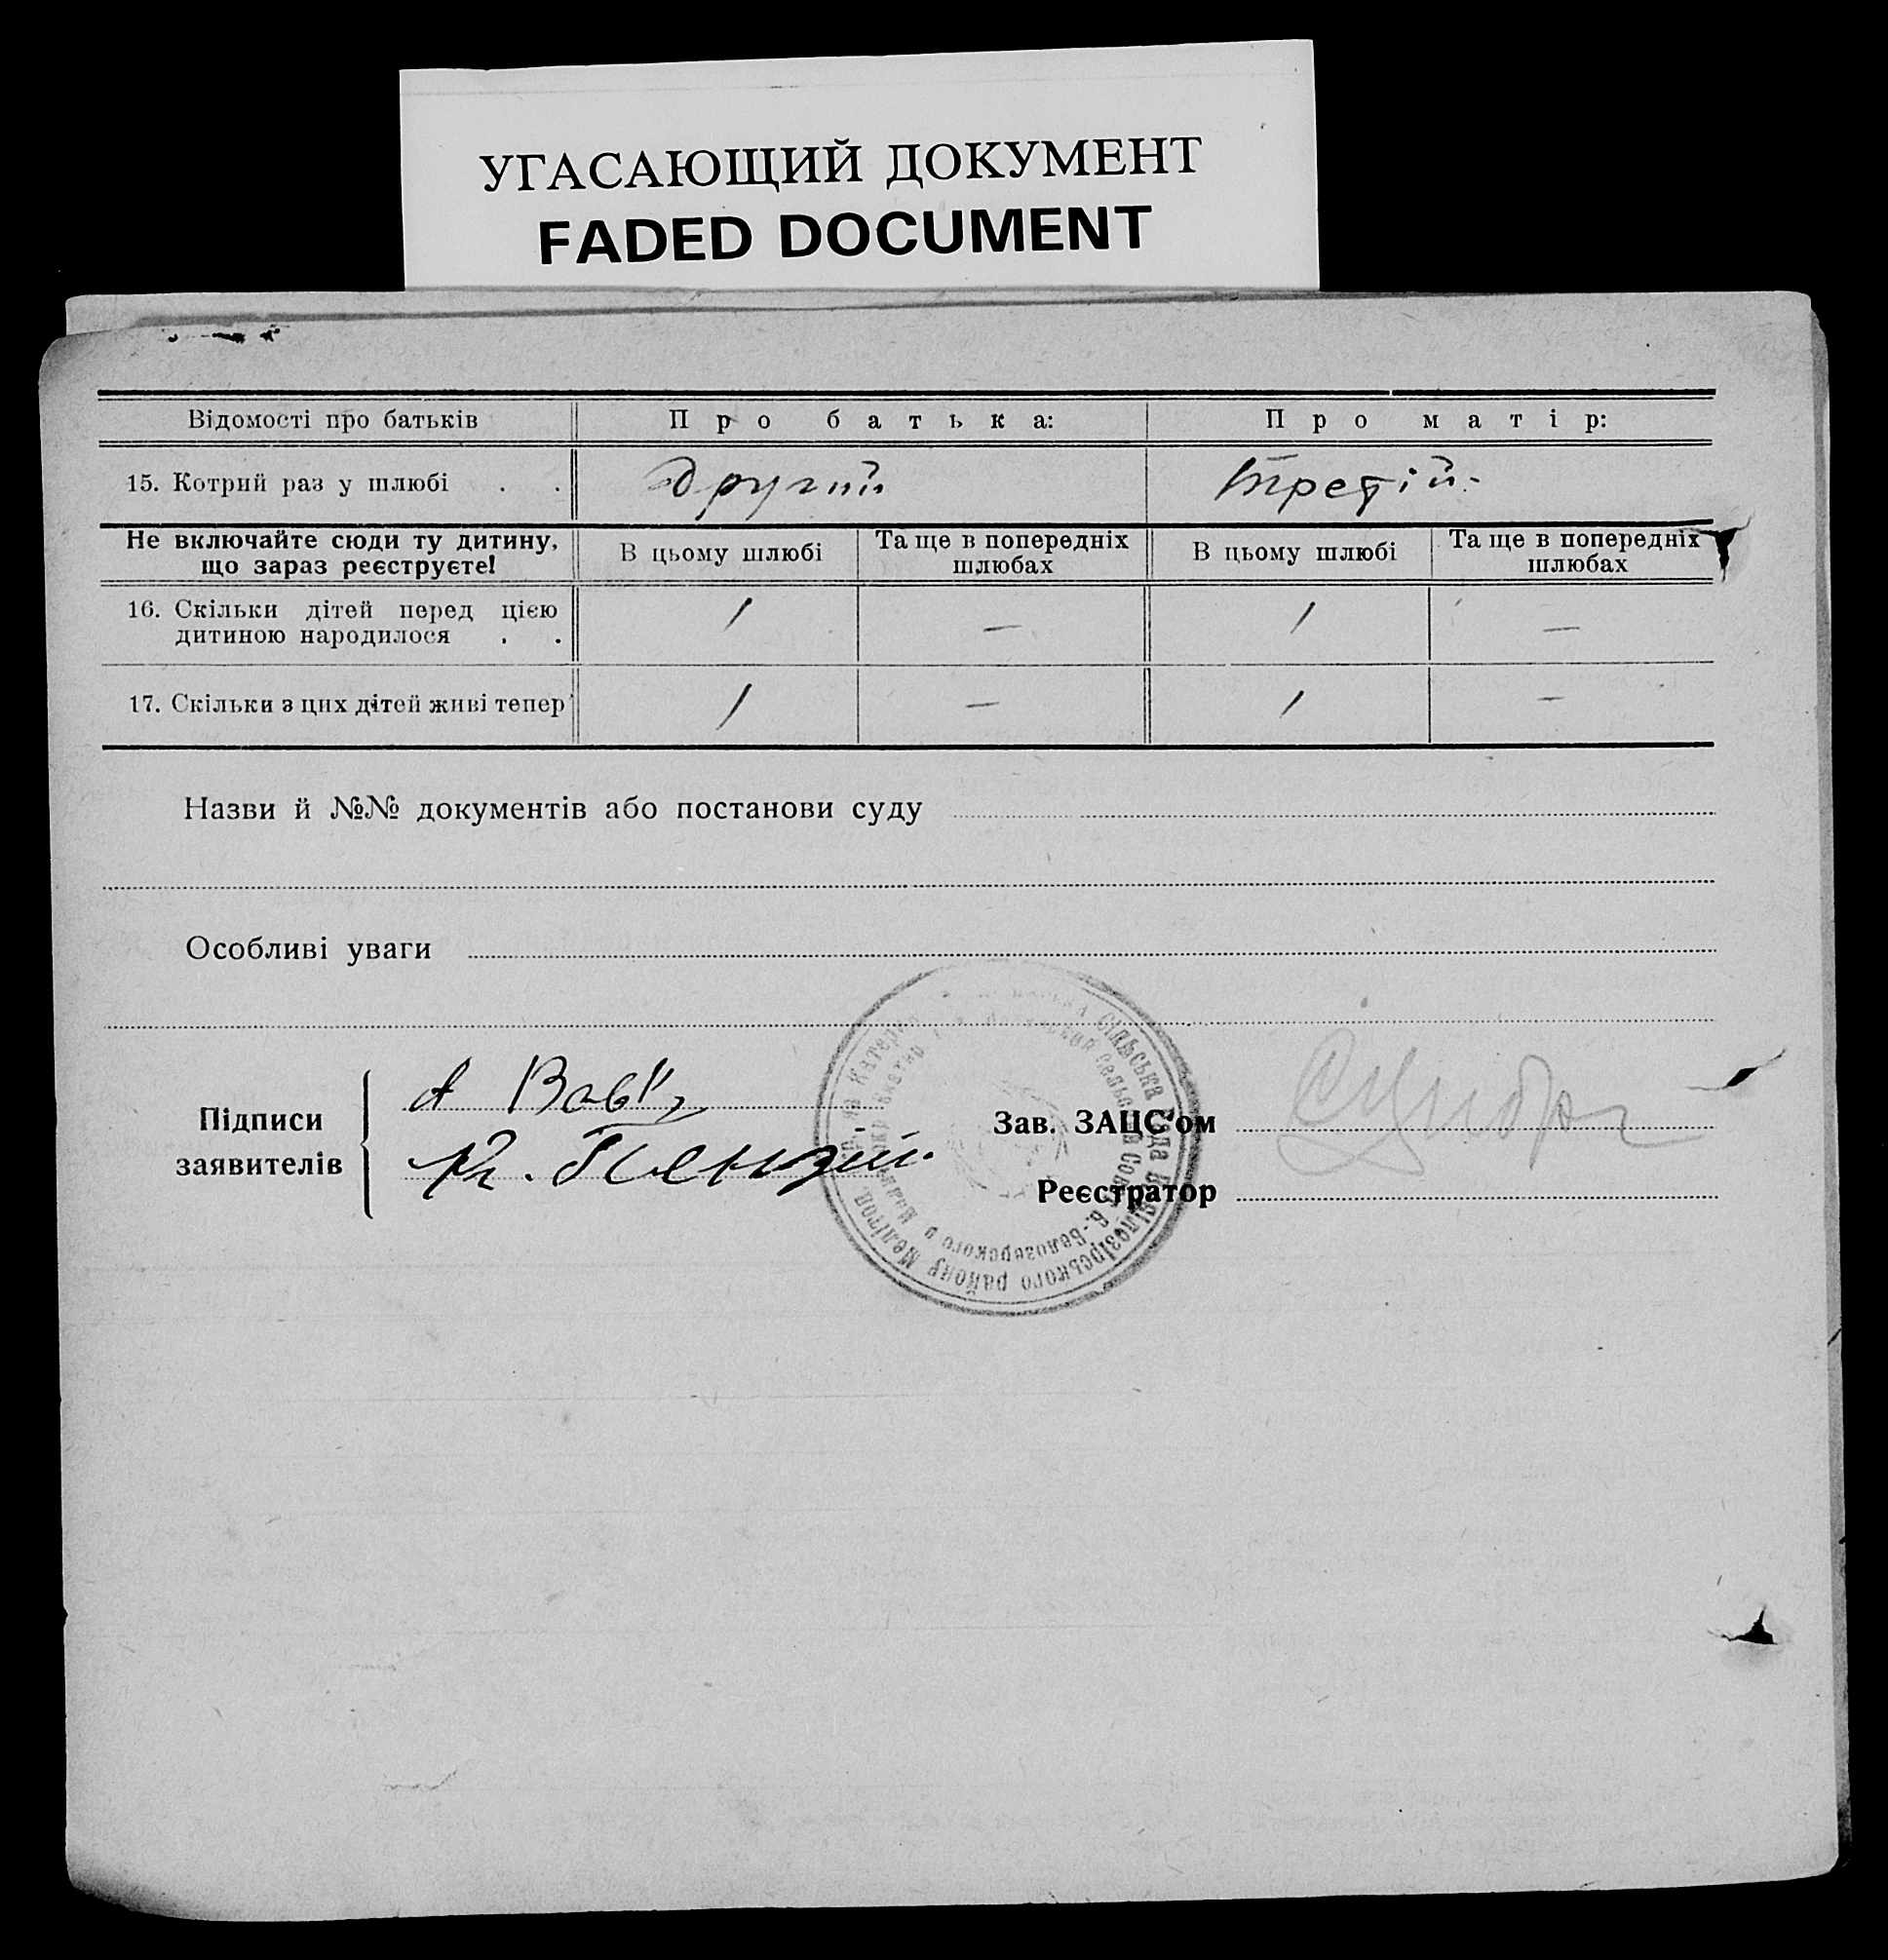 УГАСАЮЩИЙ ДОКУМЕНТ
FADED DOCUMENT
Відомості про батьків
Про батька:
Про матір:
15. Котрий раз у шлюбі . .
Другий
Третій.
Не включайте сюди ту дитину, що зараз реєструєте!
В цьому шлюбі
Та ще в попередніх шлюбах
В цьому шлюбі
Та ще в попередніх шлюбах
16. Скільки дітей перед цією дитиною народилося . .
1
—
1
—
17. Скільки з цих дітей живі тепер
1
—
1
—
Назви й №№ документів або постанови суду
Особливі уваги
Підписи заявителів
Зав. ЗАЦС'ом
Реєстратор
сільська Рада
району Меліто